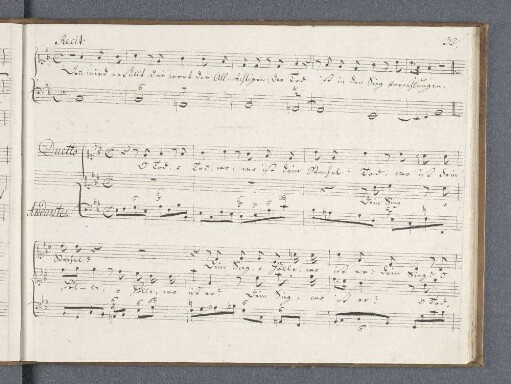 Recit: 38.
Es wird erfüllt das wort der Allmächtigen: Der Tod ist in den Sieg verschlungen.
Duetto
O Tod, o Tod, wo, wo ist dein Stachel? Tod, wo ist dein
Dein Sieg, o
Andante
Stachel? Dein Sieg, o Hölle, wo ist er? dein Sieg, o
Höl-le, o Hölle, wo ist er? Dein Sieg, wo ist er? O Tod,